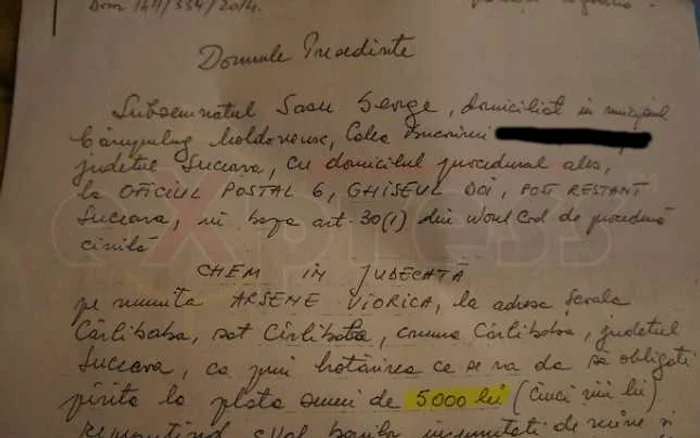 Dos. 1411/334/2014.
Domnule Președinte
Subsemnatul Sasu George, domiciliat în municipiul
Câmpulung Moldovenesc, Calea Bucovinei
județul Suceava, cu domiciliul procedural ales,
la OFICIUL POSTAL 6, GHIȘEUL DOI, POST RESTANT
Suceava, în baza art. 30(1) din Noul Cod de procedură
civilă
CHEM ÎN JUDECATĂ
pe numita ARSENE VIORICA, la adresa Școala
Cârlibaba, sat Cîrlibaba, comuna Cârlibaba, județul
Suceava, ca prin hotărârea ce se va da să obligați
pîrîta la plata sumei de 5.000 lei (cinci mii lei)
expres